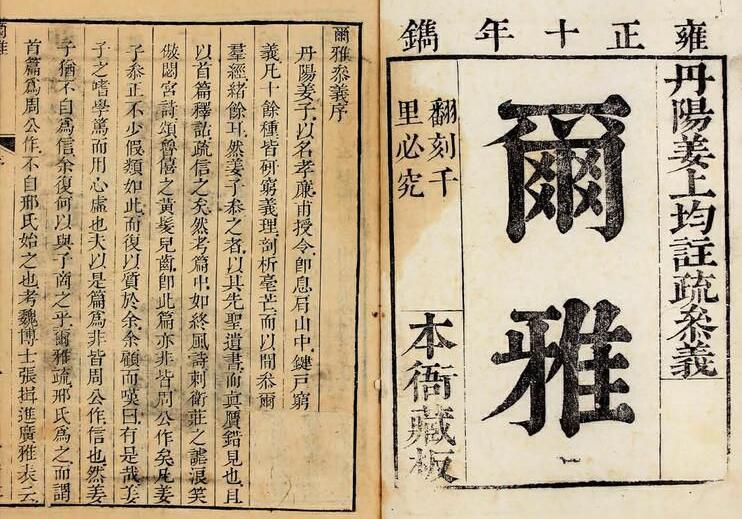 雍正十年鐫
丹陽姜上均註疏叅義
爾雅
翻刻千
里必究
本衙藏板
爾雅叅義序
丹陽姜子以名孝廉甫授令卽息肩山中鍵戸窮
義凡十餘種皆硏窮義理剖析毫芒而以閒叅爾
羣經緒餘耳然姜子叅之者以其先聖遺書而眞贗錯見也且
以首篇釋詁疏信之矣然考篇中如終風詩刺衛莊之謔浪笑
傲閟宮詩頌魯僖之黃髮兒齒卽此篇亦非皆周公作矣尾姜
子叅正不少假類如此而復以質於余余顧而嘆曰有是哉姜
子之嗜學篤而用心虛也夫以是篇爲非皆周公作信也然姜
子猶不自爲信余復何以與子商之乎爾雅疏邢氏爲之而謂
首篇爲周公作不自邢氏始之也考魏博士張揖進廣雅表云
爾雅